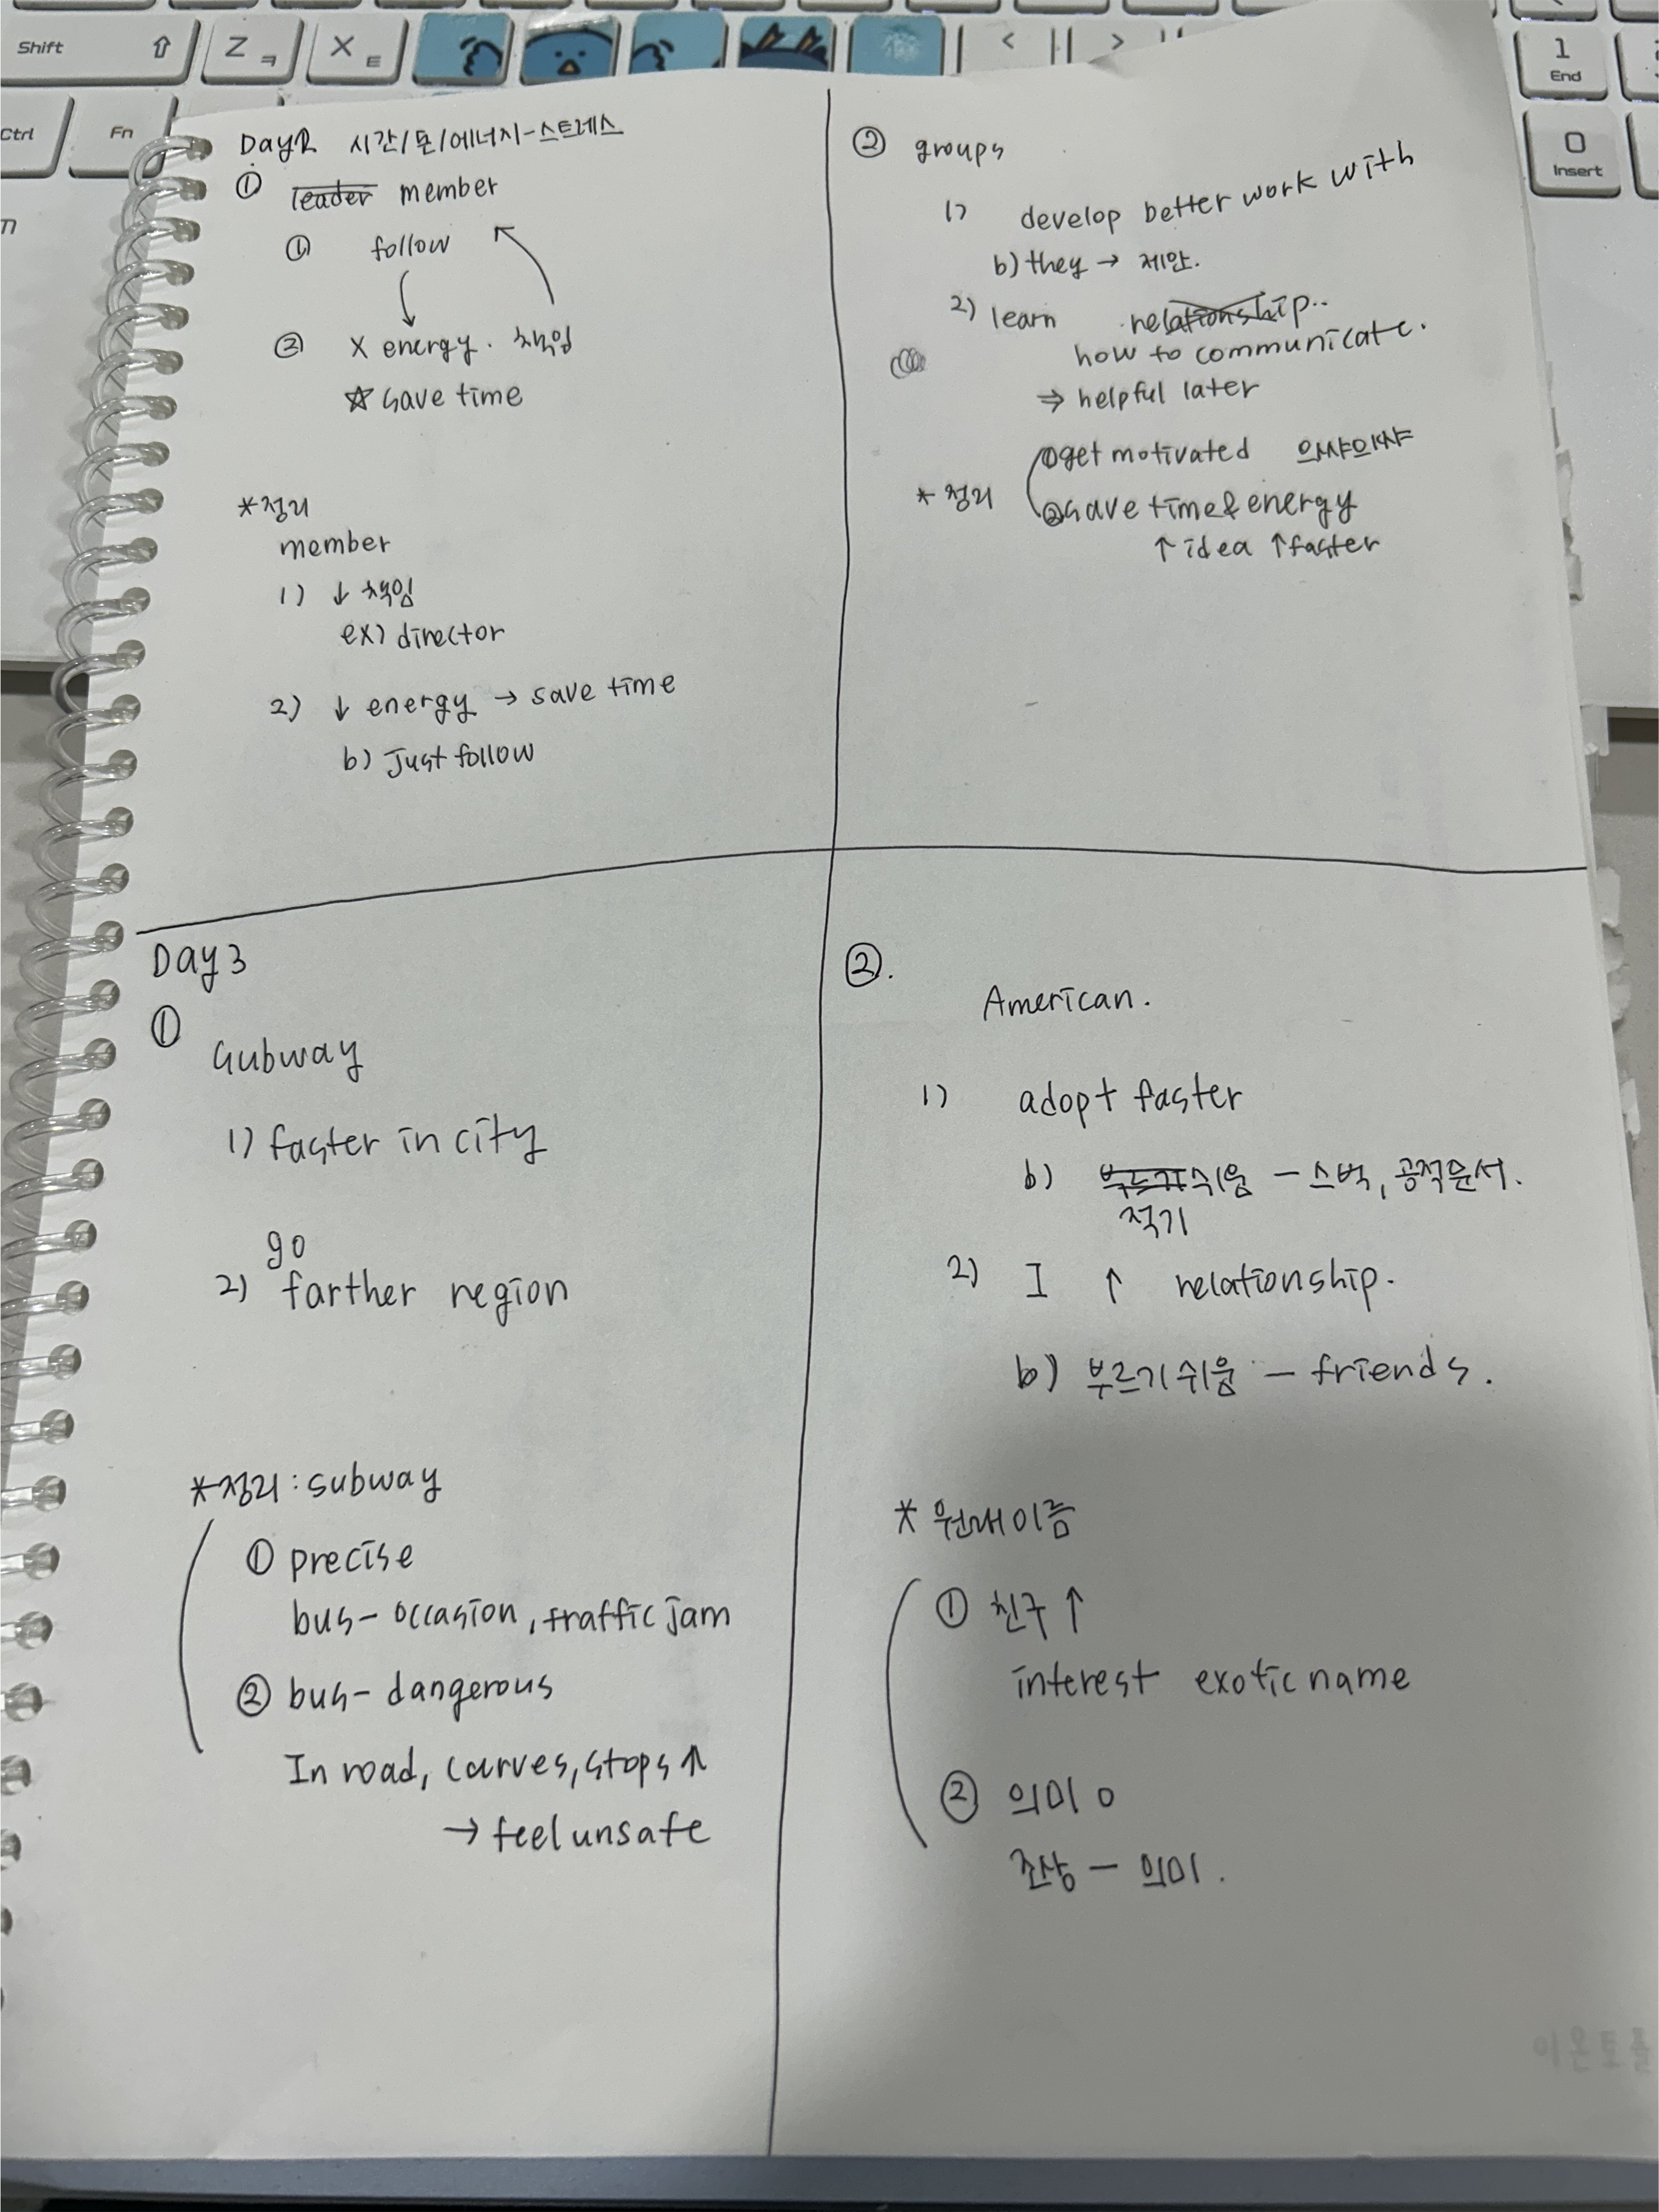 Shift
Z ㅋ
X ㅌ
<
>
1
End
Ctrl
Fn
0
Insert
Day2 시간/돈/에너지-스트레스
① leader member
① follow
② X energy. 책임
☆ save time
*정리
member
1) ↓ 책임
ex) director
2) ↓ energy → save time
b) Just follow
② groups
1) develop better work with
b) they → 제안.
2) learn relationship..
how to communicate.
⇒ helpful later
① get motivated 으쌰으쌰
* 정리
② save time & energy
↑ idea ↑ faster
Day 3
①
Subway
1) faster in city
go
2) farther region
*정리 : subway
① precise
bus - occasion, traffic jam
② bus - dangerous
In road, curves, stops ↑
→ feel unsafe
②.
American.
1) adopt faster
b) 부르기 쉬움 - 스벅, 공적문서.
적기
2) I ↑ relationship.
b) 부르기 쉬움 - friends.
* 원래이름
① 친구 ↑
interest exotic name
② 의미 o
조상 - 의미.